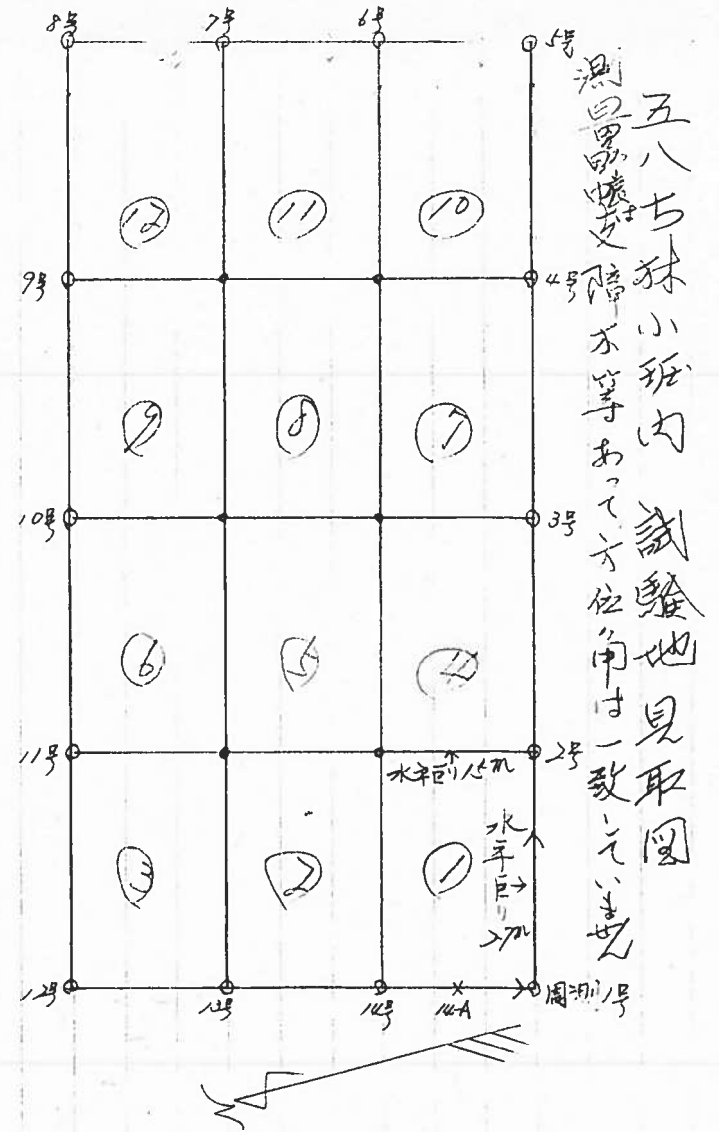 五八ち林小班内 試験地見取図
測量野帳は支障木等あって方位角は一致していません
8号
7号
6号
5号
⑫
⑪
⑩
9号
4号
⑨
⑧
⑦
10号
3号
⑥
⑤
④
11号
2号
水平距り15m
③
②
①
水平距り
12号
13号
14号
14-A
周測1号